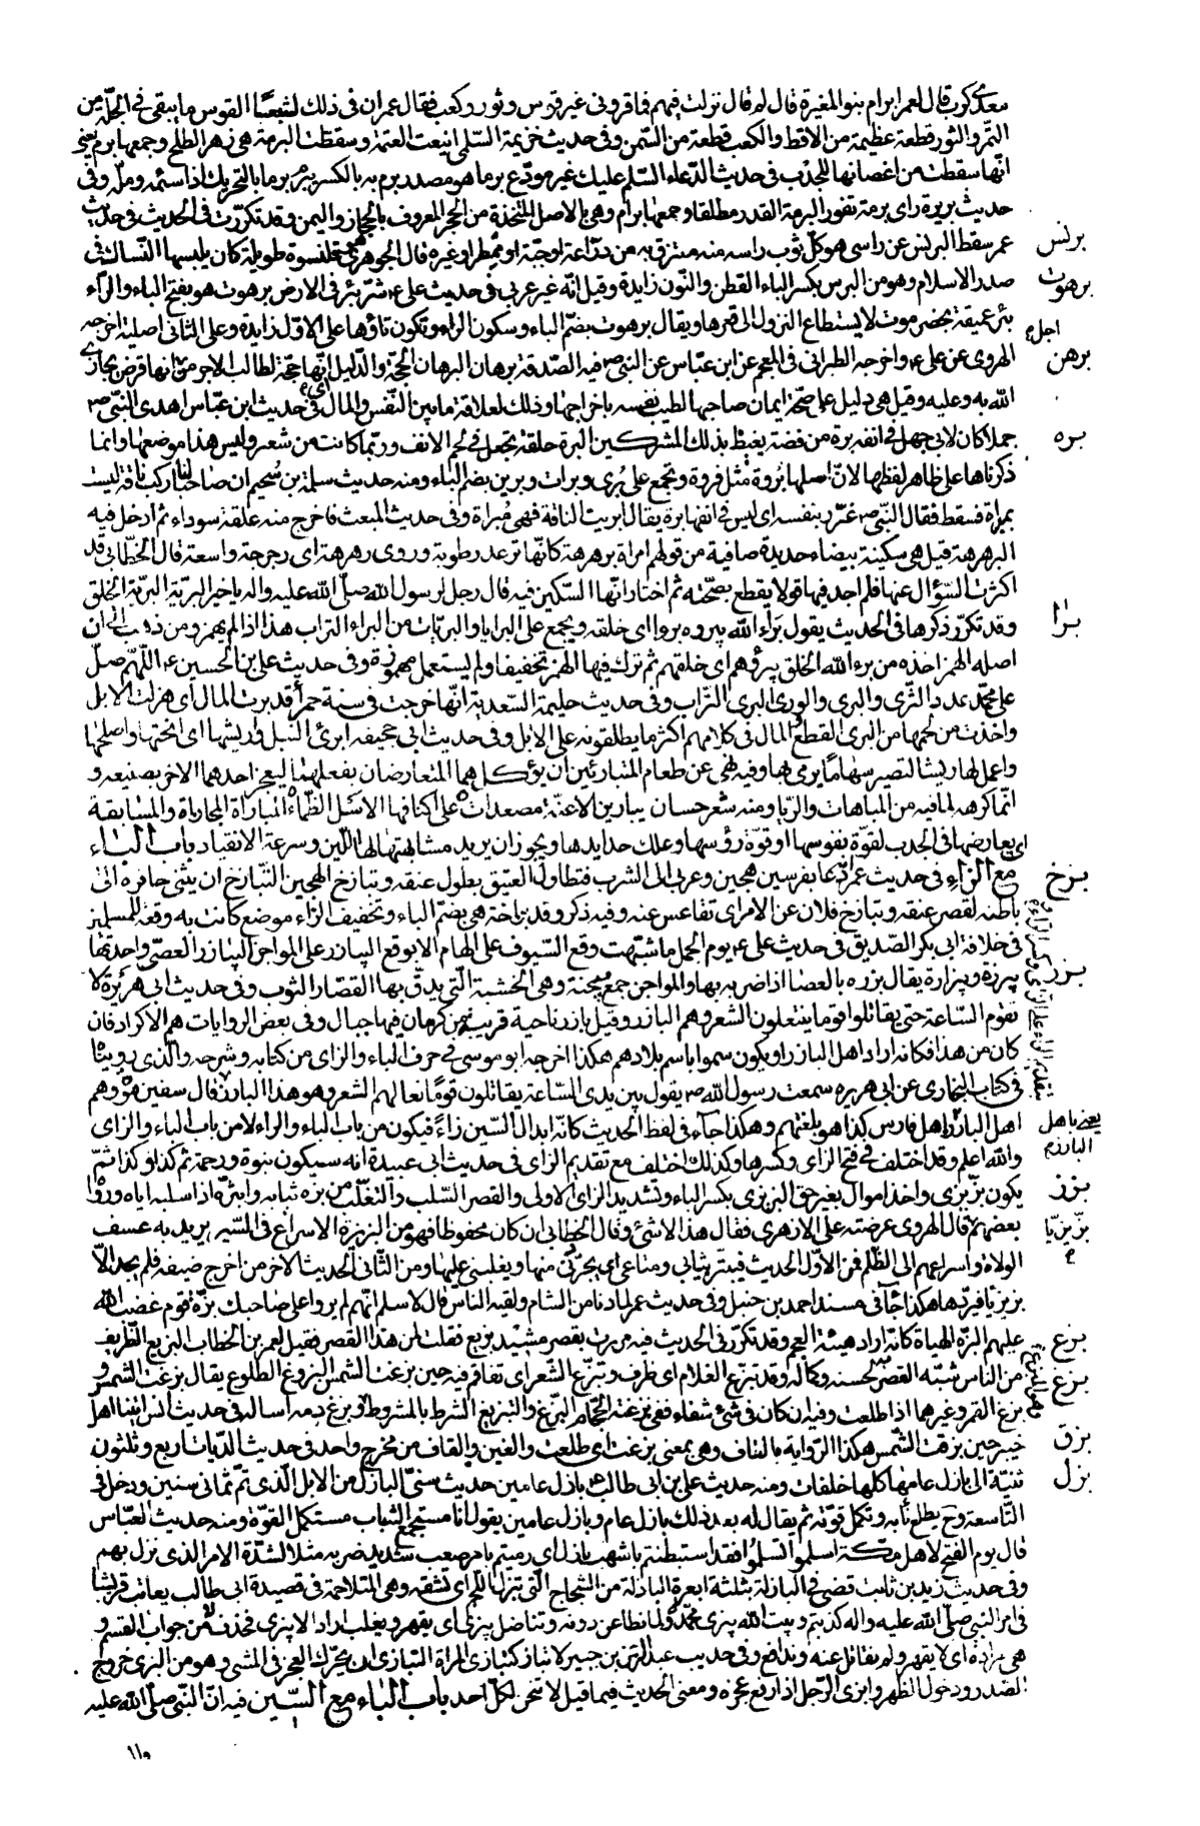 معدى كرب قال لعمر ابرام بنو المغيرة قال لم قال نزلت فيهم فما قرونى غير قوس وثور وكعب فقال عمر ان فى ذلك لشبعا القوس ما يبقى فى الجلّة من
التمر والثور قطعة عظيمة من الاقط والكعب قطعة من السّمن وفى حديث خزيمة السّلمى اينعت العنمة وسقطت البرمة هى زهر الطلح وجمعها برم يعنى
انّها سقطت من اغصانها للجدب فى حديث الدّعاء السّلم عليك غير مودّع برما هو مصدر برم به بالكسر يبرم برما بالتحريك اذا سئمه وملّه وفى
حديث بريرة راى برمة تفور البرمة القدر مطلقا وجمعها برام وهى بالاصل المتّخذة من الحجر المعروف بالحجاز واليمن وقد تكرّرت فى الحديث فى حديث
برنس
عمر سقط البرنس عن راسى هو كلّ ثوب راسه منه ملتزق به من درّاعة او جبّة او ممطر او غيره قال الجوهرى هو قلنسوة طويلة كان يلبسها النّساك فى
برهوت
صدر الاسلام وهو من البرس بكسر الباء القطن والنّون زايدة وقيل انّه غير عربى فى حديث على ع شرّ بئر فى الارض برهوت هو بفتح الباء والرّاء
بئر عميقة بحضرموت لا يستطاع النزول الى قعرها ويقال برهوت بضمّ الباء وسكون الراء وتكون تاؤها على الاوّل زايدة وعلى الثانى اصلية اخرجه
برهن
الهروى عن على ع واخرجه الطبرانى فى المعجم عن ابن عبّاس عن النبى ص فيه الصّدقة برهان البرهان الحجّة والدّليل اى انّها حجّة لطالب الاجر من اجل انها فرض يجازى
الله به وعليه وقيل هى دليل على صحّة ايمان صاحبها لطيب نفسه باخراجها وذلك لعلاقة ما بين النّفس والمال فى حديث ابن عبّاس اهدى النّبى ص
بره
جملا كان لابى جهل فى انفه برة من فضة يغيظ بذلك المشركين البرة حلقة تجعل فى لحم الانف وربّما كانت من شعر وليس هذا موضعها وانما
ذكرناها على ظاهر لفظها لانّ اصلها بروة مثل فروة وتجمع على برى وبرات وبرين بضم الباء ومنه حديث سلمة بن سحيم ان صاحبا لنا ركب ناقة ليست
بمبراة فسقط فقال النّبى ص غرّر بنفسه اى ليس فى انفها برة يقال ابريت الناقة فهى مبراة وفى حديث المبعث فاخرج منه علقة سوداء ثم ادخل فيه
البرهرهة قيل هى سكينة بيضاء جديدة صافية من قولهم امراة برهرهة كانّها ترعد رطوبة وروى رهرهة اى رحرحة واسعة قال الخطّابى قد
اكثرت السّؤال عنها فلم اجد فيها قولا يقطع بصحّته ثم اختار انّها السّكين فيه قال رجل لرسول الله صلّى الله عليه واله يا خير البريّة البريّة الخلق
برا
وقد تكرّر ذكرها فى الحديث يقول برآء الله يبروه بروا اى خلقه ويجمع على البرايا والبريّات من البراء التراب هذا اذا لم يهمز ومن ذهب الى ان
اصله الهمز اخذه من برء الله الخلق يبرؤهم اى خلقهم ثم ترك فيها الهمز تخفيفا ولم يستعمل مهموزة وفى حديث على بن الحسين ع اللّهمّ صلّ
على محمّد عدد الثّرى والبرى والورى البرى التّراب وفى حديث حليمة السّعدية انّها خرجت فى سنة حمراء قد برت المال اى هزلت الابل
واخذت من لحمها من البرى القطع والمال فى كلامهم اكثر ما يطلقونه على الابل وفى حديث ابى جحيفه ابرئ النبل واريشها اى انحتها واصلحها
واعمل لها ريشا لتصير سهاما يرمى بها وفيه نهى عن طعام المتباريين ان يؤكل هما المتعارضان بفعلهما ليعجز احدهما الاخر بصنيعه و
انّما كرهه لما فيه من المباهات والرّيا ومنه شعر حسان يبارين الاعنّة مصعدات على اكتافها الاسل الظّماء المباراة المجاراة والمسابقة
اى يعارضها فى الجذب لقوّة نفوسها او قوّة رؤسها وعلك حدايدها ويجوز ان يريد مشابهتها لها فى اللّين وسرعة الانقياد باب الباء
بزخ
مع الزّاء فى حديث عمر انّه دعا بفرسين هجين وعربى الى الشرب فتطاول العتيق بطول عنقه وتبازخ الهجين التّبازخ ان يثنى حافره الى
باطنه لقصر عنقه وتبازخ فلان عن الامر اى تقاعس عنه وفيه ذكر وقد بزاخة هى بضمّ الباء وتخفيف الزاء موضع كانت به وقعة للمسلمين
فى خلافة ابى بكر الصّديق فى حديث على ع يوم الجمل ما شبّهت وقع السّيوف على الهام الا بوقع البيازر على المواجن البيازر العصىّ واحدتها
بزر
بيزرة وبيزارة يقال بزره بالعصا اذا ضربه بها والمواجن جمع ميجنة وهى الخشبة الّتى يدقّ بها القصّار الثوب وفى حديث ابى هريرة لا
تقوم السّاعة حتى يقاتلوا قوما ينتعلون الشعر وهم البازر وقيل بازر ناحية قريبة من كرمان فيها جبال وفى بعض الروايات هم الاكراد فان
كان من هذا فكانه اراد اهل البازر او يكون سموا باسم بلادهم هكذا اخرجه ابو موسى فى حرف الباء والزاى من كتابه وشرحه والّذى رويناه
فى كتاب البخارى عن ابى هريره سمعت رسول الله ص يقول بين يدى السّاعة يقاتلون قوما نعالهم الشعر وهو هذا البارز قال سفين مرّة وهم
يعنى باهل البارز
اهل البارز اهل فارس كذا هو بلغتهم وهكذا جآء فى لفظ الحديث كانّه ابدل السّين زاءً فيكون من باب الباء والراء لا من باب الباء والزاى
والله اعلم وقد اختلف فى فتح الزاى وكسرها وكذلك اختلف مع تقديم الزاى فى حديث ابى عبيدة انه سيكون نبوة ورحمة ثم كذا وكذا ثمّ
بزز
يكون بزّيزى واخذ اموال بغير حق البزيزى بكسر الباء وتشديد الزاى الاولى والقصر السّلب والتغلّب من بزه ثيابه وابتزّه اذا سلبه اياه ورواه
بزّيزيّا
بعضهم قال الهروى عرضته على الازهرى فقال هذا لا شئ وقال الخطابى ان كان محفوظا فهو من البزبزة الاسراع فى السّير يريد به عسف
الولاة واسراعهم الى الظّلم فمن الاوّل الحديث فيبتزّ ثيابى ومتاعى اى يجرّدنى منها ويغلبنى عليها ومن الثّانى الحديث الاخر من اخرج ضيفه فلم يجد الّا
بزبزيا فيردّها هكذا جآء فى مسند احمد بن حنبل وفى حديث عمر لما دنا من الشام ولقيه الناس قال لاسلم انّهم لم يروا على صاحبك بزّة قوم غضب الله
بزع
عليهم البزّة الهياة كانّه اراد هيئة العجم وقد تكرّر فى الحديث فيه مررت بقصر مشيد بزيع فقلت لمن هذا القصر فقيل لعمر بن الخطاب البزيع الظّريف
بزغ
من الناس شبّه القصر به لحسنه وكماله وقد تبزّع الغلام اى ظرف وتبزّع الشّر اى تفاقم فيه حين بزغت الشمس البزوغ الطلوع يقال بزغت الشمس و
بزغ القمر وغيرهما اذا طلعت وفيه ان كان فى شئ شفاء ففى بزغة الحجّام البزغ والتبزيغ الشرط بالمشرط وبزغ دمه اساله فى حديث انس اتينا اهل
بزق
خيبر حين بزقت الشّمس هكذا الرّواية بالقاف وهى بمعنى بزغت اى طلعت والغين والقاف من مخرج واحد فى حديث الدّيات اربع وثلثون
بزل
ثنيّة الى بازل عامها كلها خلفات ومنه حديث على بن ابى طالب بازل عامين حديث سنّى البازل من الابل الّذى تمّ ثمانى سنين ودخل فى
التّاسعة وح يطلع نابه وتكمل قوّته ثم يقال له بعد ذلك بازل عام وبازل عامين يقول انا مستجمع الشباب مستكمل القوّة ومنه حديث العبّاس
قال يوم الفتح لاهل مكّة اسلموا تسلموا فقد استبطنتم باشهب بازل اى رميتم بامر صعب شديد ضربه مثلا لشدّة الامر الذى نزل بهم
وفى حديث زيد بن ثابت قضى فى البازلة بثلثة ابعرة البازلة من الشجاج الّتى تبزل اللحم اى تشقه وهى المتلاحمة فى قصيدة ابى طالب يعاتب قريشا
فى امر النبى صلّى الله عليه واله كذبتم وبيت الله يبزى محمّد ولما نطاعن دونه ونناضل يبزى اى يقهر ويغلب اراد لا يبزى فحذف لا من جواب القسم و
هى مرادة اى لا يقهر ولم نقاتل عنه وندافع وفى حديث عبد الرّحمن بن جبير لا تباز كتبازى المراة التبازى ان يحرّك العجز فى المشى وهو من البزى خروج
الصّدر ودخول الظهر وابزى الرّجل اذا رفع عجزه ومعنى الحديث فيما قيل لا تنحن لكلّ احد باب الباء مع السّين فيه انّ النّبى صلّى الله عليه